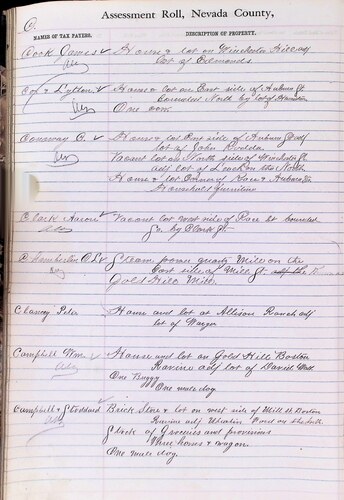 C
Assessment Roll, Nevada County,
NAMES OF TAX PAYERS.
DESCRIPTION OF PROPERTY.
Cook James House & lot on Winchester Hill adj
lot of Edmonds
Coy & Lytton House & lot on East side of Auburn St
bounded North by lot of
One cow
Conaway C. House & lot East side of Auburn St adj
lot of John
Vacant lot on North side of St
adj lot of on the North
House & lot Corner of & Auburn Sts
Household Furniture
Clark Aaron Vacant lot west side of Race St bounded
So. by Clark St
Chamberlin Steam power quartz Mill on the
East side of Mill St
Gold Hill Mill
Chasing Peter House and lot at Allison Ranch adj
lot of
Campbell Wm House and lot on Gold Hill Boston
Ravine adj lot of David
One Buggy
One male dog
Campbell & Stoddard Brick Store & lot on west side of Mill St Boston
Ravine adj Yard on the
Stock of Groceries and provisions
Three horses & wagon
One male dog.